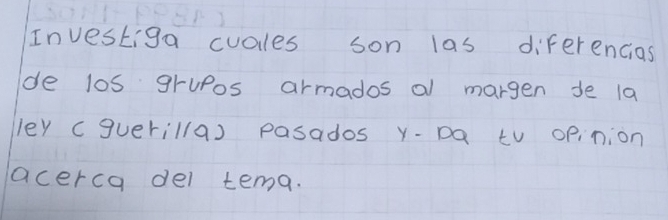 Investiga cuales son las diferencias
de los grupos armados al margen de la
ley (guerilla) pasados y - Da tu opinion
acerca del tema.